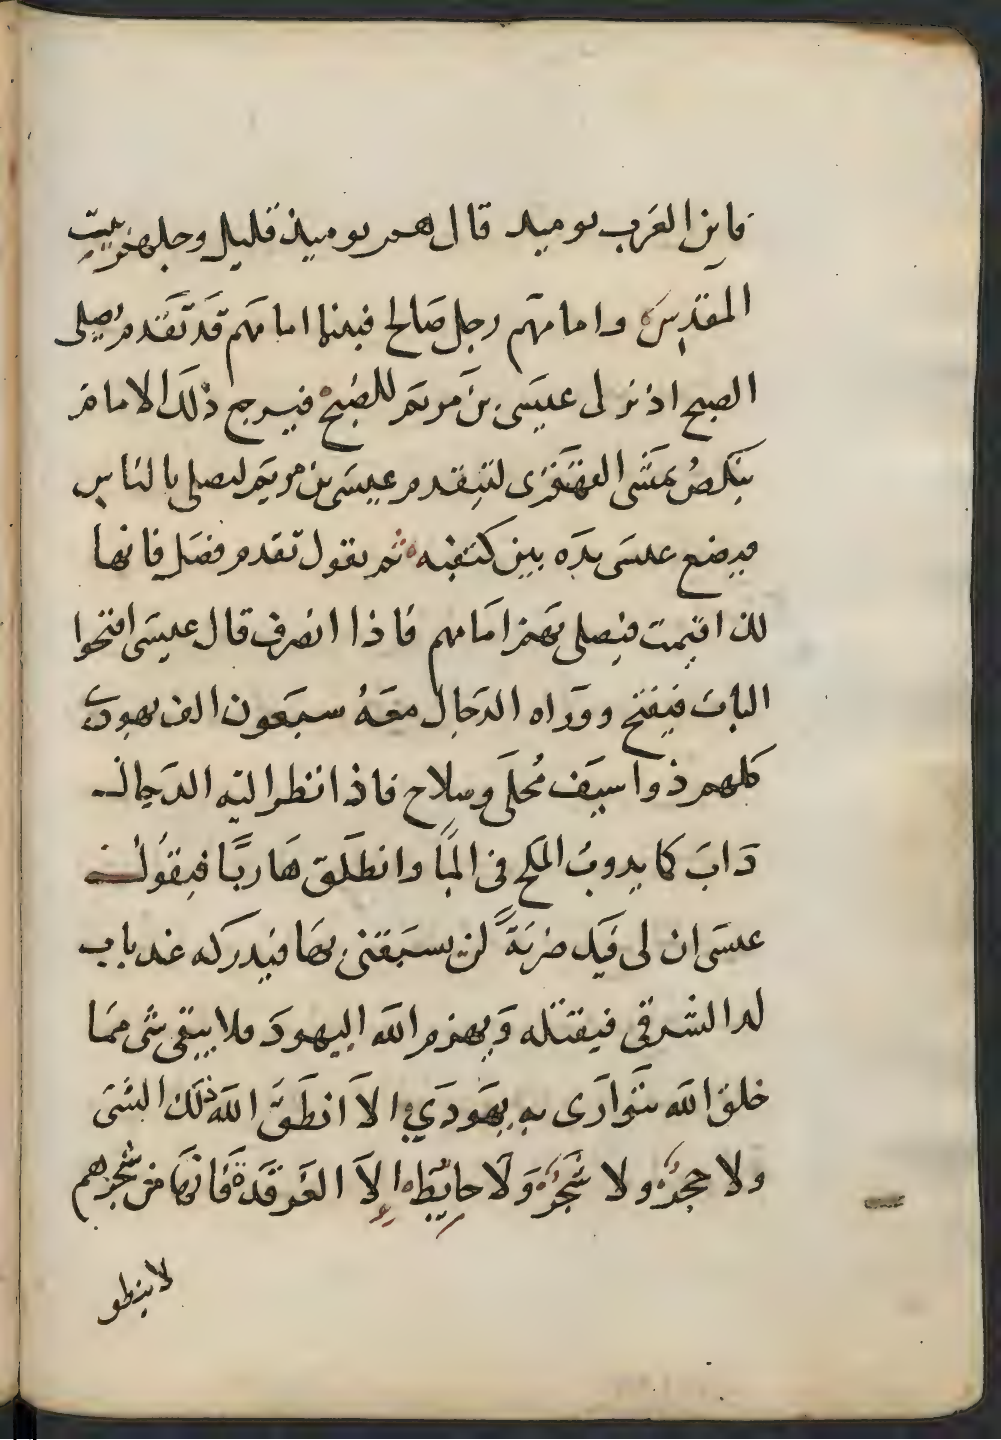 فاين العرب يوميد قال هم يوميذ قليل وجلهم ببيت
المقدس وامامهم رجل صالح فبينما امامهم قد تقدم يصلى
الصبح اذ نزل عيسى بن مريم للصبح فيرجع ذلك الامام
ينكص يمشى القهقرى ليتقدم عيسى بن مريم ليصلى بالناس
فيضع عيسى يده بين كتفيه ثم يقول تقدم فصل فانها
لك اقيمت فيصلى بهم امامهم فاذا انصرف قال عيسى افتحوا
الباب فيفتح ووراه الدجال معه سبعون الف يهودى
كلهم ذوا سيف محلى وسلاح فاذا نظر اليه الدجال
ذاب كما يذوب الملح فى الما وانطلق هاربا فيقول
عيسى ان لى فيك ضربة لن يسبقنى بها فيدركه عند باب
لد الشرقى فيقتله ويهزم الله اليهود فلا يبقى شى مما
خلق الله يتوارى به يهودي الا انطق الله ذلك الشى
ولا حجر ولا شجر ولا حايط الا الغرقدة فانها من شجرهم
لا ينطق